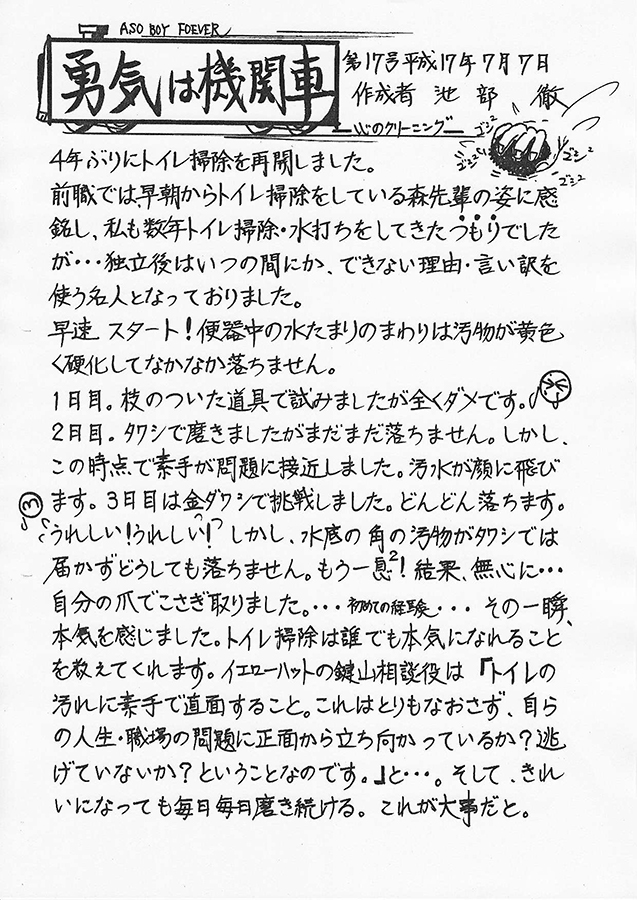 ASO BOY FOEVER
勇気は機関車
第17号平成17年7月7日
作成者 池部 徹
心のクリーニング
ゴシ² ゴシ²
ゴシ² ゴシ²
4年ぶりにトイレ掃除を再開しました。
前職では、早朝からトイレ掃除をしている森先輩の姿に感
銘し、私も数年トイレ掃除・水打ちをしてきたつもりでした
が・・・独立後はいつの間にか、できない理由・言い訳を
使う名人となっておりました。
早速 スタート!便器中の水たまりのまわりは汚物が黄色
く硬化してなかなか落ちません。
1日目。枝のついた道具で試みましたが全くダメです。
2日目。タワシで磨きましたがまだまだ落ちません。しかし、
この時点で素手が問題に接近しました。汚水が顔に飛び
ます。3日目は金ダワシで挑戦しました。どんどん落ちます。
うれしい!うれしい!しかし、水底の角の汚物がタワシでは
届かずどうしても落ちません。もう一息²!結果、無心に・・・
自分の爪でこさぎ取りました。・・・初めての経験・・・その一瞬、
本気を感じました。トイレ掃除は誰でも本気になれること
を教えてくれます。イエローハットの鍵山相談役は「トイレの
汚れに素手で直面すること。これはとりもなおさず、自ら
の人生・職場の問題に正面から立ち向かっているか?逃
げていないか?ということなのです。」と・・・。そして、きれ
いになっても毎日毎日磨き続ける。これが大事だと。